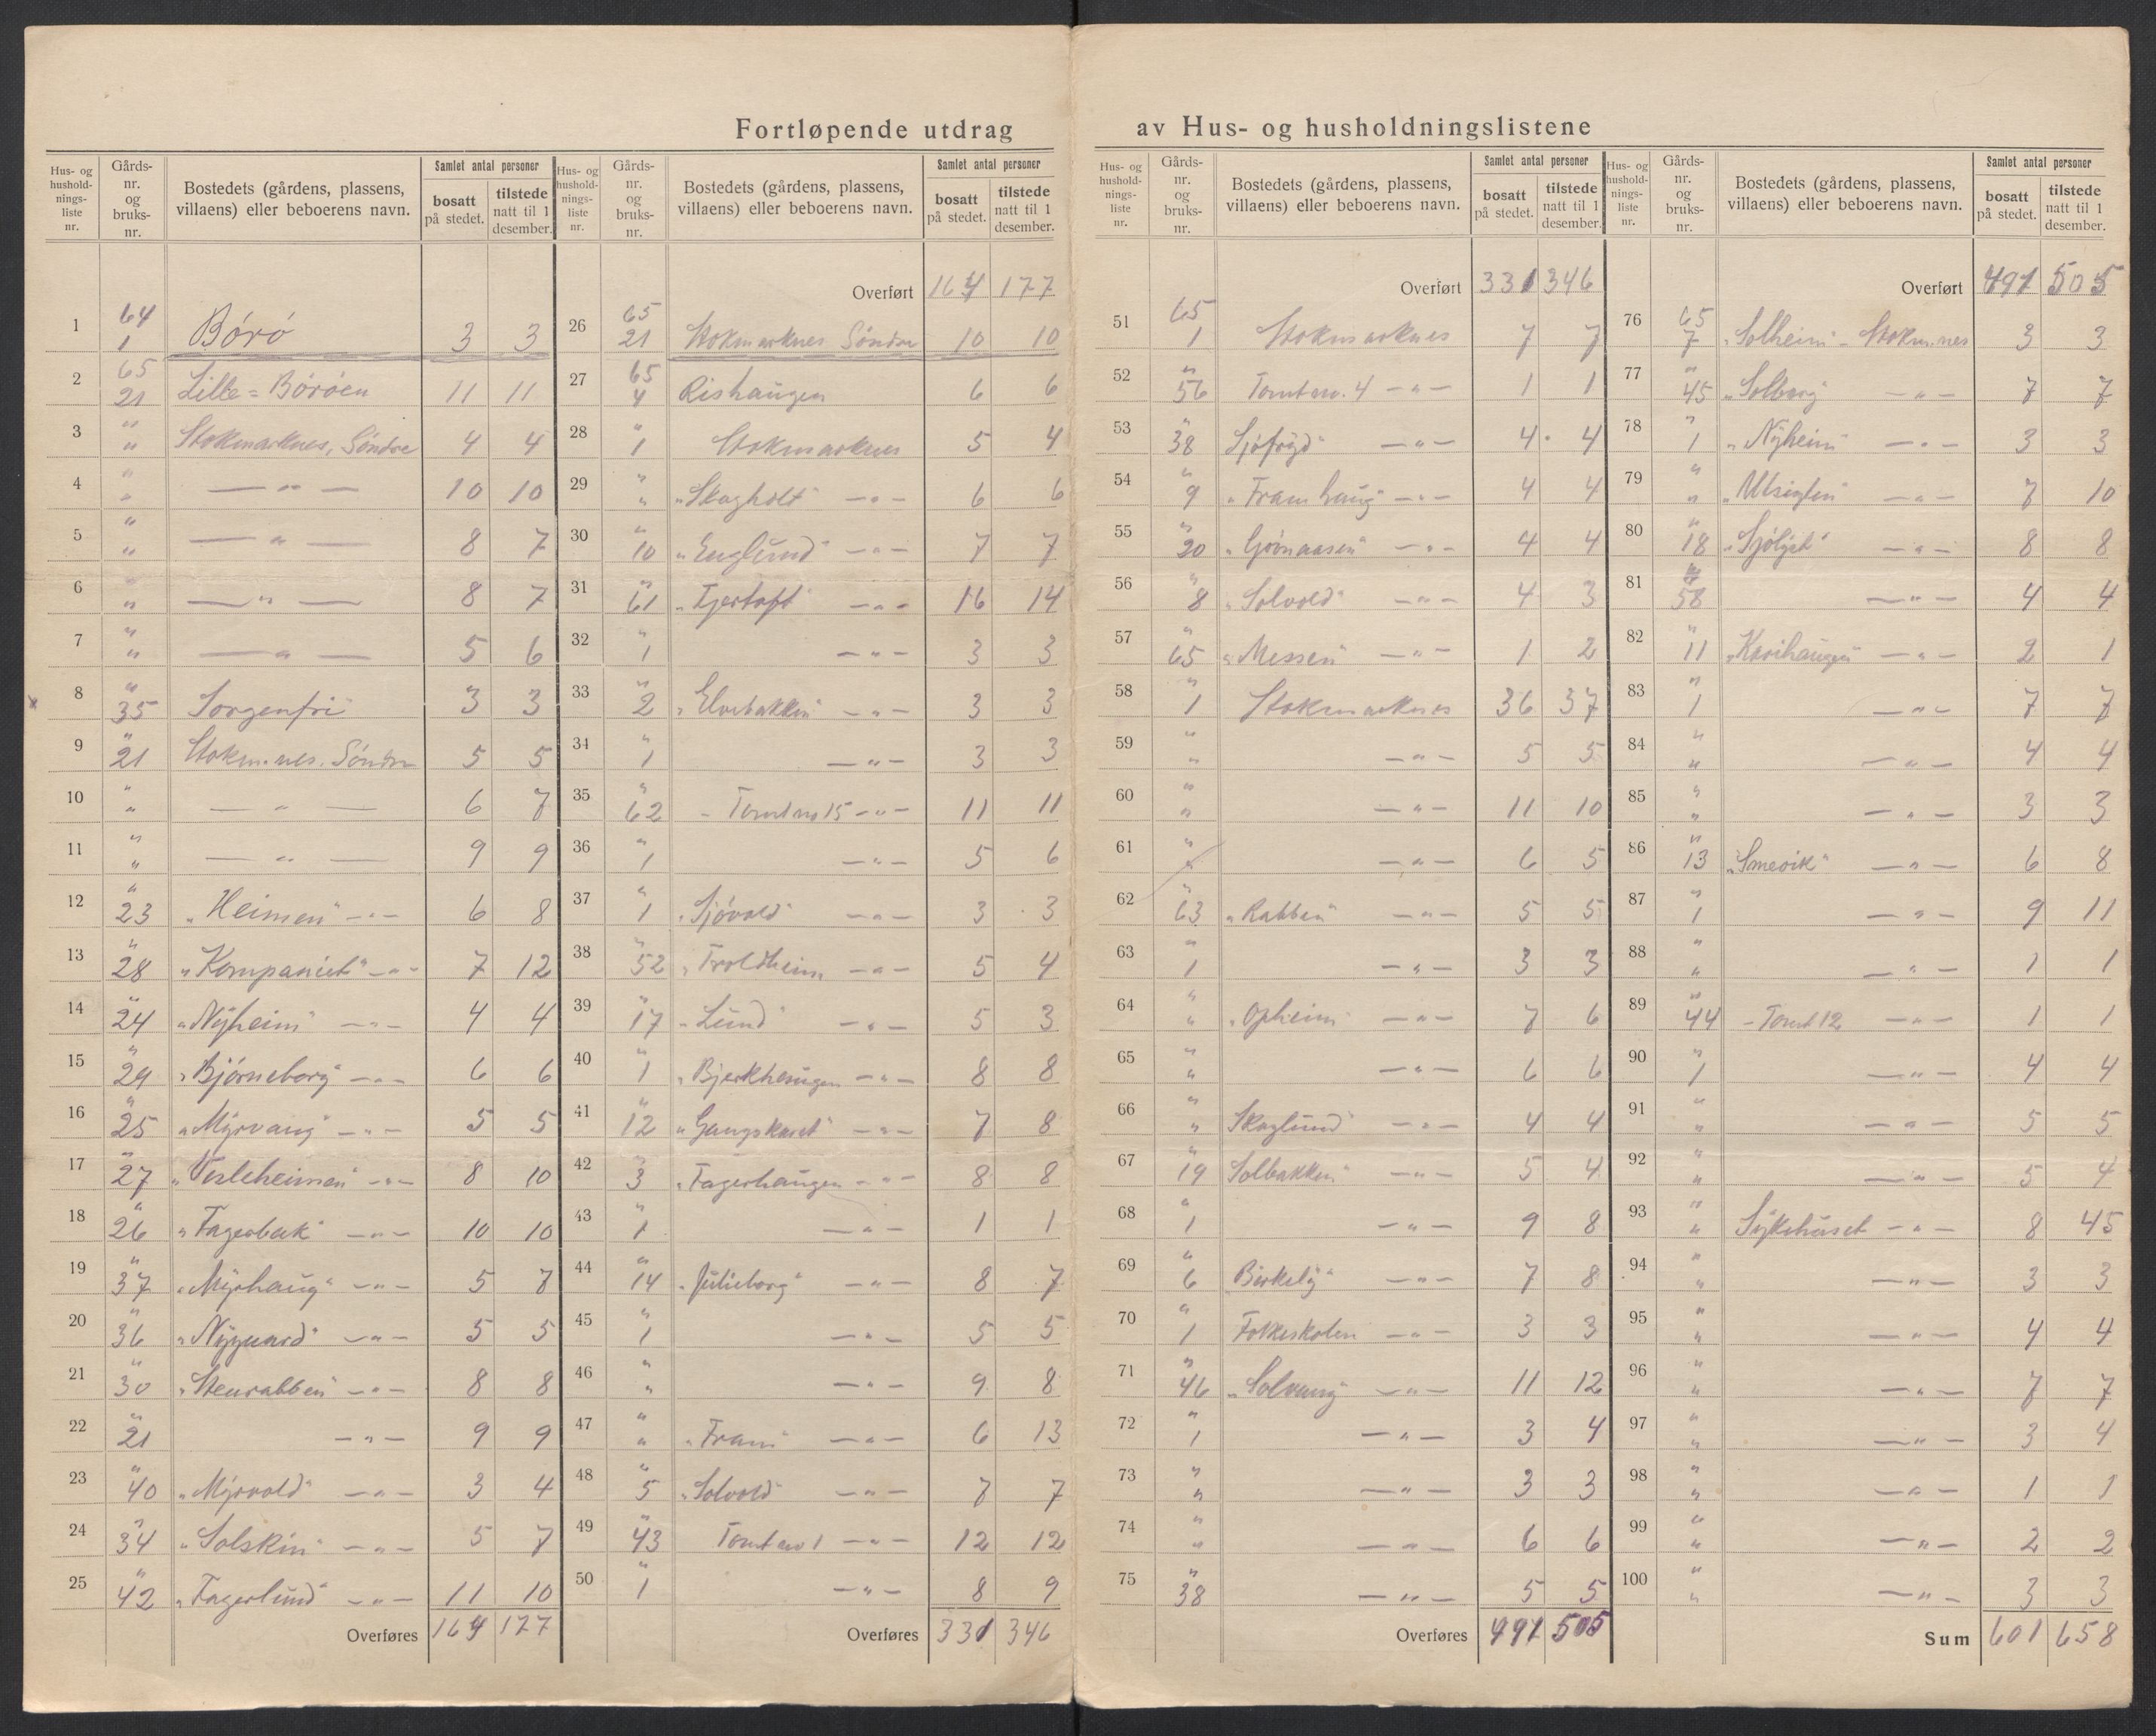 Fortløpende utdrag av Hus- og husholdningslistene
Hus- og husholdningsliste nr. | Gårds-nr. og bruks-nr. | Bostedets (gårdens, plassens, villaens) eller beboerens navn. | Samlet antal personer: bosatt på stedet. | tilstede natt til 1 desember.
1 | 64 1 | Børø | 3 | 3
2 | 65 21 | Lille=Børøen | 11 | 11
3 | " " | Stokmarknes, Søndre | 4 | 4
4 | " " | — " — | 10 | 10
5 | " " | — " — | 8 | 7
6 | " " | — " — | 8 | 7
7 | " " | — " — | 5 | 6
8 | " 35 | Sorgenfri | 3 | 3
9 | " 21 | Stokm.nes. Søndre | 5 | 5
10 | " " | — " — | 6 | 7
11 | " " | — " — | 9 | 9
12 | " 23 | "Heimen" — " — | 6 | 8
13 | " 28 | "Kompaniet" — " — | 7 | 12
14 | " 24 | "Nyheim" — " — | 4 | 4
15 | " 29 | "Bjørneborg" — " — | 6 | 6
16 | " 25 | "Myrvang" — " — | 5 | 5
17 | " 27 | "Vesleheimen" — " — | 8 | 10
18 | " 26 | "Fagerbak" — " — | 10 | 10
19 | " 37 | "Myrhaug" — " — | 5 | 7
20 | " 36 | "Nygaard" — " — | 5 | 5
21 | " 30 | "Stenrabben" — " — | 8 | 8
22 | " 21 | — " — | 9 | 9
23 | " 40 | "Myrvold" — " — | 3 | 4
24 | " 34 | "Solskin" — " — | 5 | 7
25 | " 42 | "Fagerlund" — " — | 11 | 10
Overføres 164 | 177
Hus- og husholdningsliste nr. | Gårds-nr. og bruks-nr. | Bostedets (gårdens, plassens, villaens) eller beboerens navn. | Samlet antal personer: bosatt på stedet. | tilstede natt til 1 desember.
Overført 164 | 177
26 | 65 21 | Stokmarknes Søndre | 10 | 10
27 | 65 4 | Rishaugen | 6 | 6
28 | " 1 | Stokmarknes | 5 | 4
29 | " " | "Skogholt" — " — | 6 | 6
30 | " 10 | "Englund" — " — | 7 | 7
31 | " 61 | "Tjertoft" — " — | 16 | 14
32 | " 1 | — " — | 3 | 3
33 | " 2 | "Elvebakken" — " — | 3 | 3
34 | " 1 | — " — | 3 | 3
35 | " 62 | - Tomt no 15 — " — | 11 | 11
36 | " 1 | — " — | 5 | 6
37 | " 1 | "Sjøvold" — " — | 3 | 3
38 | " 52 | "Troldheim — " — | 5 | 4
39 | " 17 | "Lund" — " — | 5 | 3
40 | " 1 | "Bjerkhaugen — " — | 8 | 8
41 | " 12 | "Gangskaret" — " — | 7 | 8
42 | " 3 | "Fagerhaugen — " — | 8 | 8
43 | " 1 | — " — | 1 | 1
44 | " 14 | "Julieborg" — " — | 8 | 7
45 | " 1 | — " — | 5 | 5
46 | " " | — " — | 9 | 8
47 | " " | "Fram" — " — | 6 | 13
48 | " 5 | "Solvold" — " — | 7 | 7
49 | " 43 | Tomt no 1 — " — | 12 | 12
50 | " 1 | — " — | 8 | 9
Overføres 331 | 346
Hus- og husholdningsliste nr. | Gårds-nr. og bruks-nr. | Bostedets (gårdens, plassens, villaens) eller beboerens navn. | Samlet antal personer: bosatt på stedet. | tilstede natt til 1 desember.
Overført 331 | 346
51 | 65 1 | Stokmarknes | 7 | 7
52 | " 56 | Tomt no. 4 — " — | 1 | 1
53 | " 38 | Sjøfryd" — " — | 4 | 4
54 | " 9 | "Framhaug" — " — | 4 | 4
55 | " 20 | "Grønaasen" — " — | 4 | 4
56 | " 8 | "Solvold" — " — | 4 | 3
57 | " 65 | "Messen" — " — | 1 | 2
58 | " 1 | Stokmarknes | 36 | 37
59 | " " | — " — | 5 | 5
60 | " " | — " — | 11 | 10
61 | " " | — " — | 6 | 5
62 | " 63 | "Rabben" — " — | 5 | 5
63 | " 1 | — " — | 3 | 3
64 | " " | "Opheim — " — | 7 | 6
65 | " " | — " — | 6 | 6
66 | " " | Skoglund" — " — | 4 | 4
67 | " 19 | Solbakken" — " — | 5 | 4
68 | " 1 | — " — | 9 | 8
69 | " 6 | Birkely" — " — | 7 | 8
70 | " 1 | Folkeskolen — " — | 3 | 3
71 | " 46 | "Solvang" — " — | 11 | 12
72 | " 1 | — " — | 3 | 4
73 | " " | — " — | 3 | 3
74 | " " | — " — | 6 | 6
75 | " 38 | — " — | 5 | 5
Overføres 491 | 505
Hus- og husholdningsliste nr. | Gårds-nr. og bruks-nr. | Bostedets (gårdens, plassens, villaens) eller beboerens navn. | Samlet antal personer: bosatt på stedet. | tilstede natt til 1 desember.
Overført 491 | 505
76 | 65 7 | "Solheim" - Stokm.nes | 3 | 3
77 | " 45 | "Solborg" — " — | 7 | 7
78 | " 1 | "Nyheim" — " — | 3 | 3
79 | " " | "Utsigten" — " — | 7 | 10
80 | " 18 | "Sjølyst" — " — | 8 | 8
81 | 58 | — " — | 4 | 4
82 | " 11 | — " — | 2 | 1
83 | " 1 | — " — | 7 | 7
84 | " " | — " — | 4 | 4
85 | " " | — " — | 3 | 3
86 | " 13 | "Smevik" — " — | 6 | 8
87 | " 1 | — " — | 9 | 11
88 | " " | — " — | 1 | 1
89 | " 44 | - Tomt 12 — " — | 1 | 1
90 | " 1 | — " — | 4 | 4
91 | " " | — " — | 5 | 5
92 | " " | — " — | 5 | 4
93 | " " | Sykehuset — " — | 8 | 45
94 | " " | — " — | 3 | 3
95 | " " | — " — | 4 | 4
96 | " " | — " — | 7 | 7
97 | " " | — " — | 3 | 4
98 | " " | — " — | 1 | 1
99 | " " | — " — | 2 | 2
100 | " " | — " — | 3 | 3
Sum 601 | 658